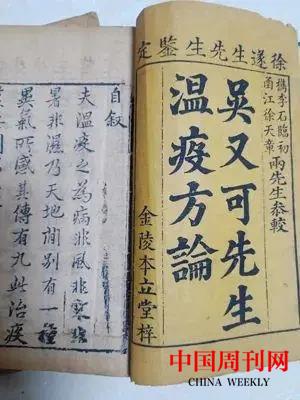 徐遂生先生鑒定
檇李石臨初
甬江徐天章
兩先生參較
吳又可先生
温疫方論
金陵本立堂梓
自叙
夫温疫之為病非風非寒非
暑非濕乃天地間別有一種
異氣所感其傳有九此治疫
中国周刊网
CHINA WEEKLY